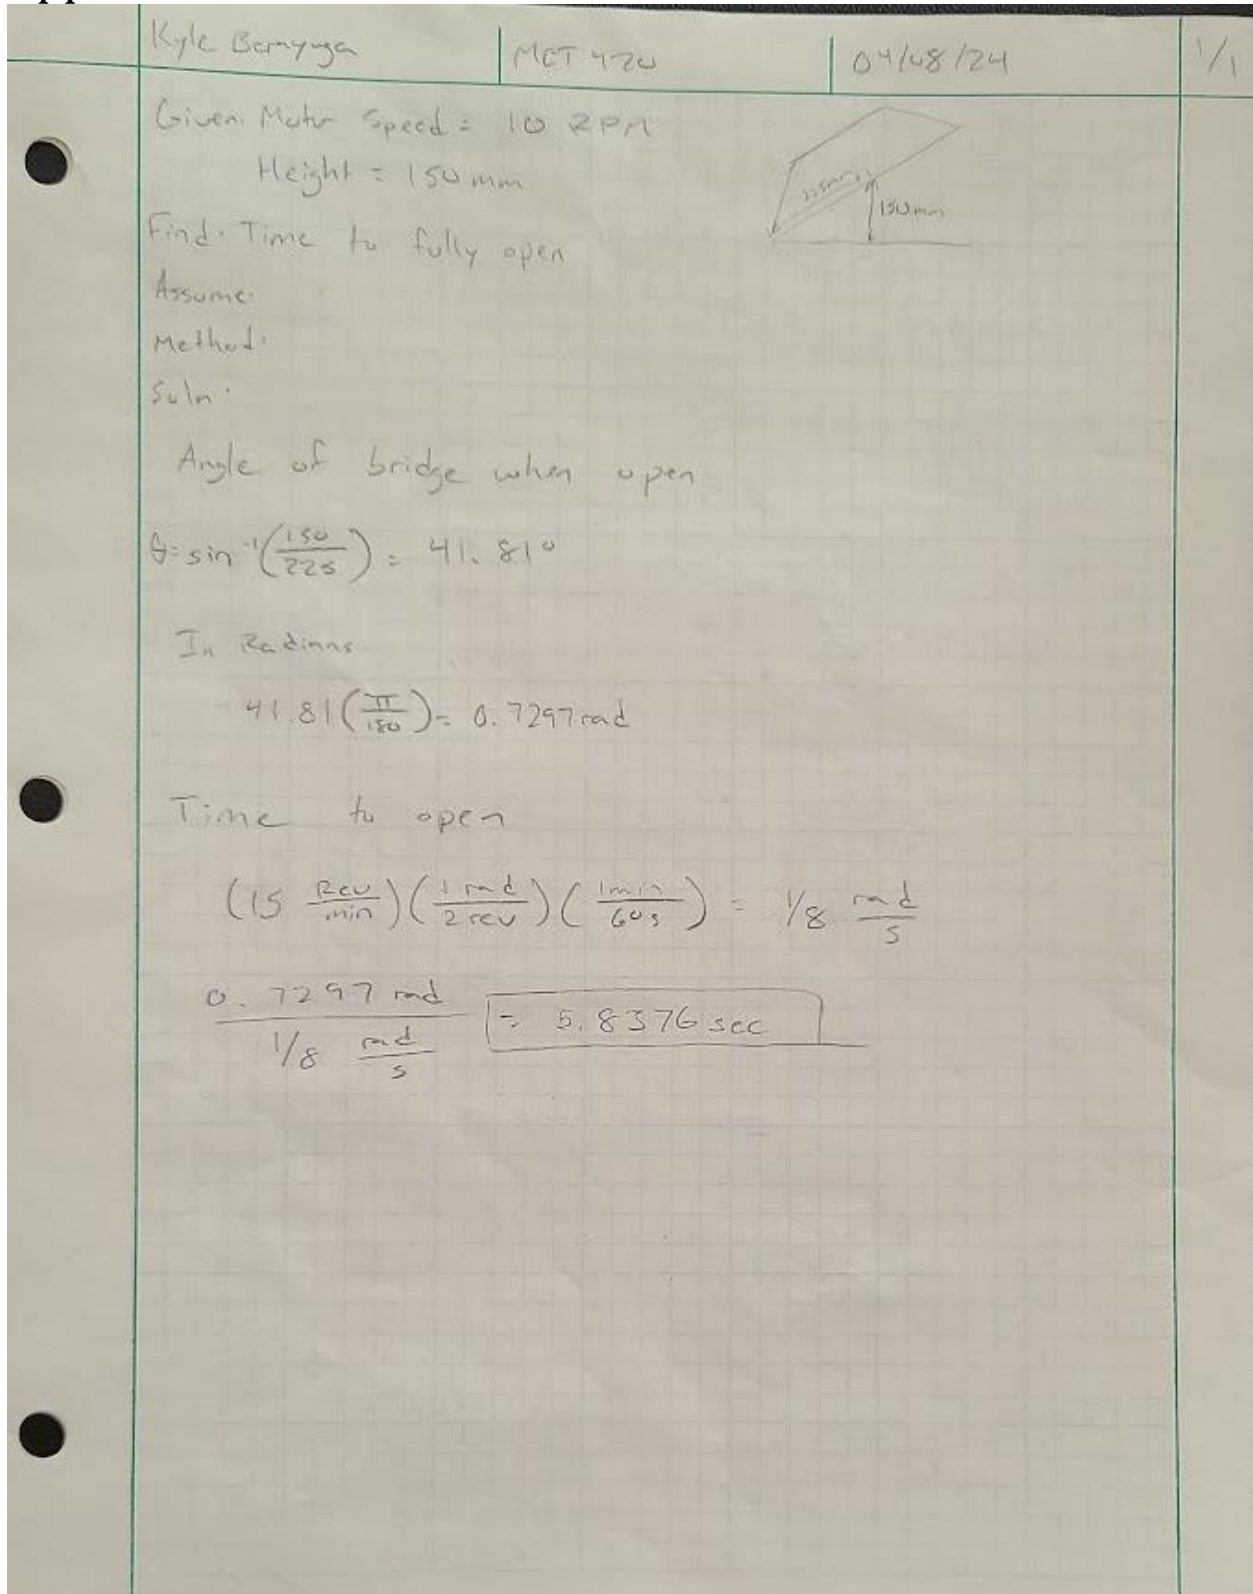 Kyle
MET 420
04/08/24
1/1
Given: Motor Speed = 10 RPM
Height = 150 mm
225mm
150mm
Find: Time to fully open
Assume:
Method:
Soln:
Angle of bridge when open
θ = sin⁻¹(150/225) = 41.81°
In Radians
41.81(π/180) = 0.7297 rad
Time to open
(15 Rev/min)(1 rad/2 rev)(1min/60s) = 1/8 rad/s
0.7297 rad / 1/8 rad/s = 5.8376 sec